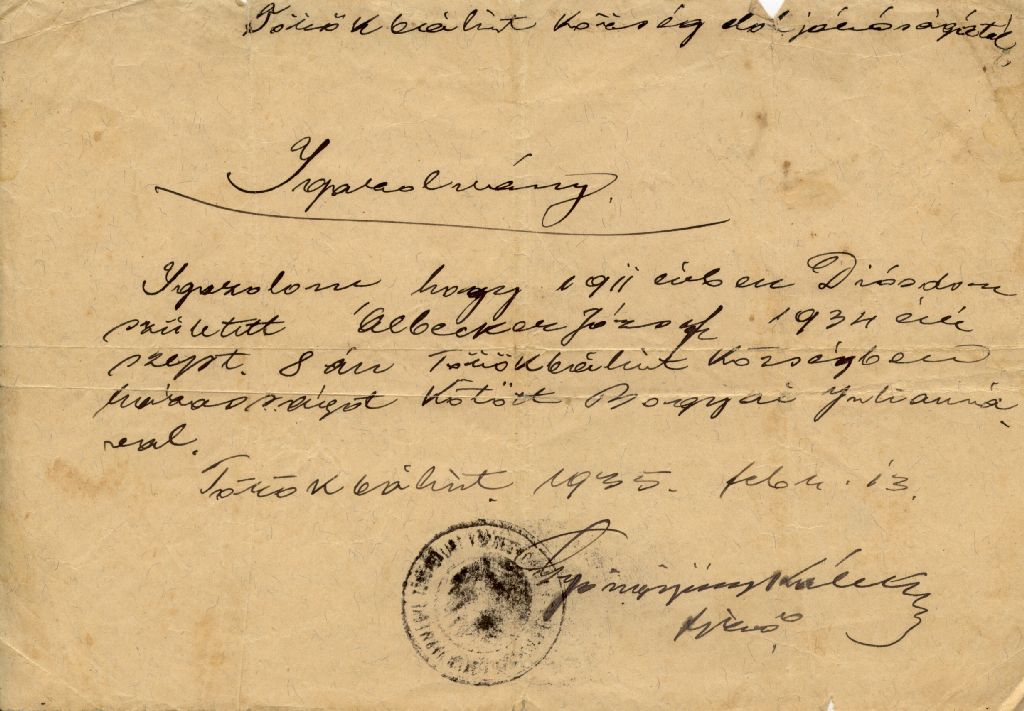 Törökbálint község elöljáróságától
Igazolvány
Igazolom hogy 1911 évben Diósdon
született Albecker József 1934 évi
szept. 8 án Törökbálint községben
házasságot kötött Bognyai Julianná
val.
Törökbálint. 1935. febr. 13.